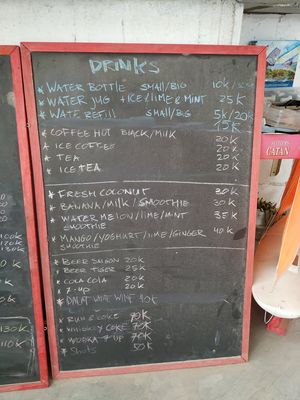 DRINKS
* WATER BOTTLE SMALL/BIG 10K/
* WATER JUG + ICE/LIME & MINT 25K
* WATE REFILL SMALL/BIG 5K/20K
* COFFEE HOT BLACK/MILK 15K
20K
* ICE COFFEE 20K
* TEA 20K
* ICE TEA 20K
* FRESH COCONUT 30K
* BANANA/MILK/SMOOTHIE 30K
* WATER MELON/LIME/MINT SMOOTHIE 35K
* MANGO/YOGHURT/LIME/GINGER SMOOTHIE 40K
* BEER SAIGON 20K
* BEER TIGER 25K
* COLA COLA 20K
* 7-UP 20K
* DALAT WHIT WINE 40K
* RUM & COKE 70K
* WHISKEY COKE 70K
* WODKA 7UP 70K
* Shots 50K
130K
110K
CATAN